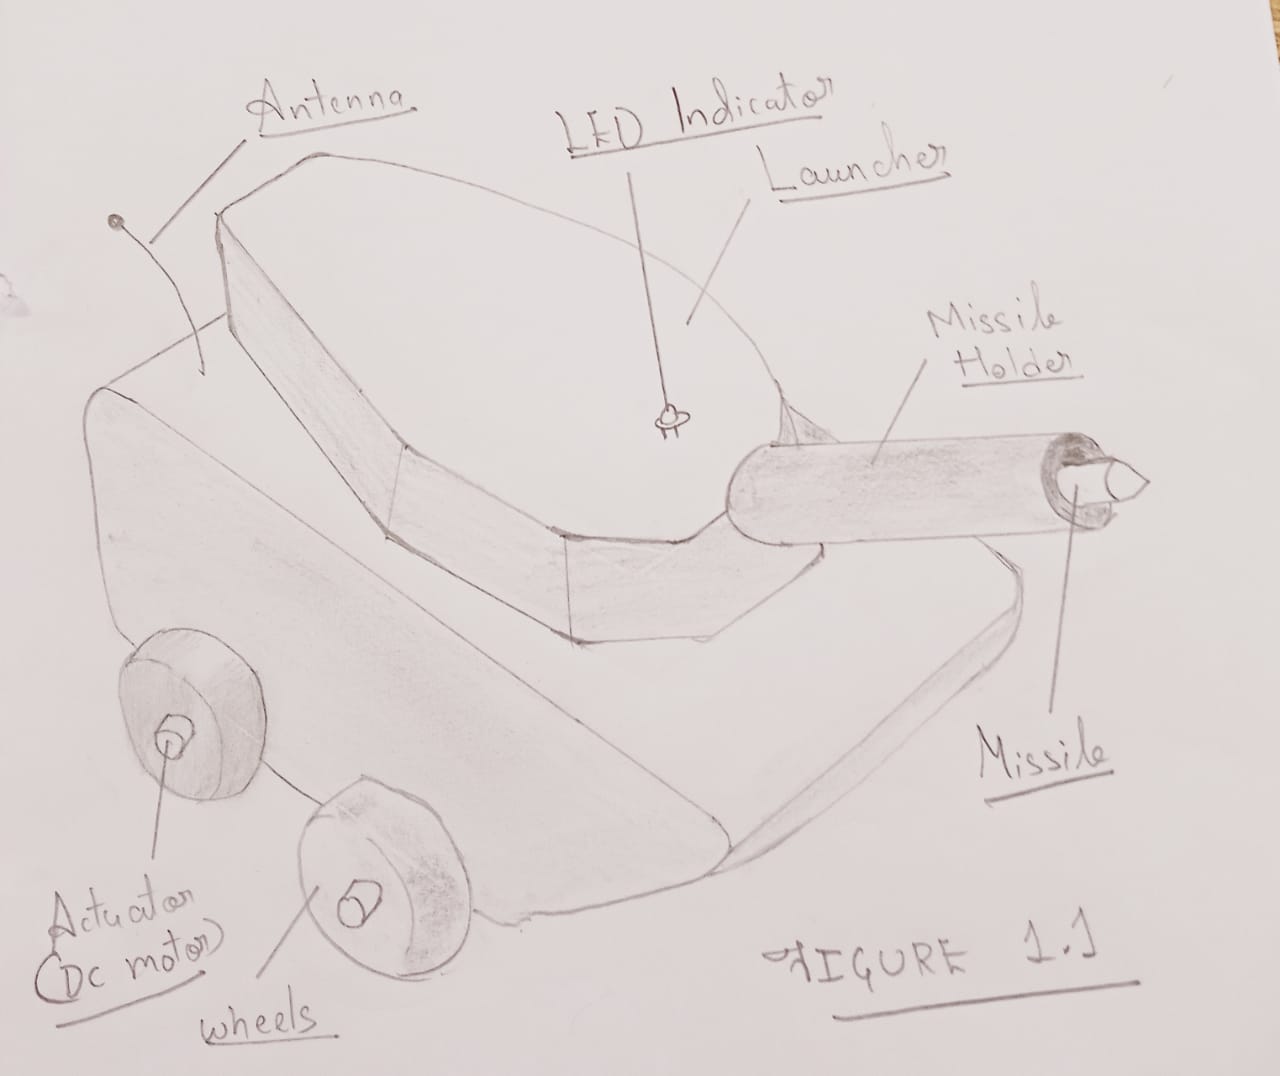 Antenna
LED Indicator
Launcher
Missile
Holder
Missile
Actuator
(DC motor)
wheels
FIGURE 1.1